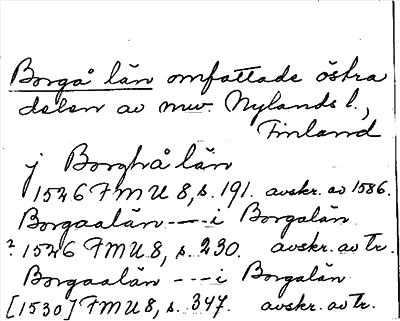 Borgå län omfattade östra
delen av nuv. Nylands l.,
Finland
j Borghå län
1526 FMU 8, s. 191. avskr. av 1586.
Borgaalän --- i Borgalän
? 1526 FMU 8, s. 230. avskr. av Tr.
Borgaalän --- i Borgalän
[1530] FMU 8, s. 347. avskr. av Tr.